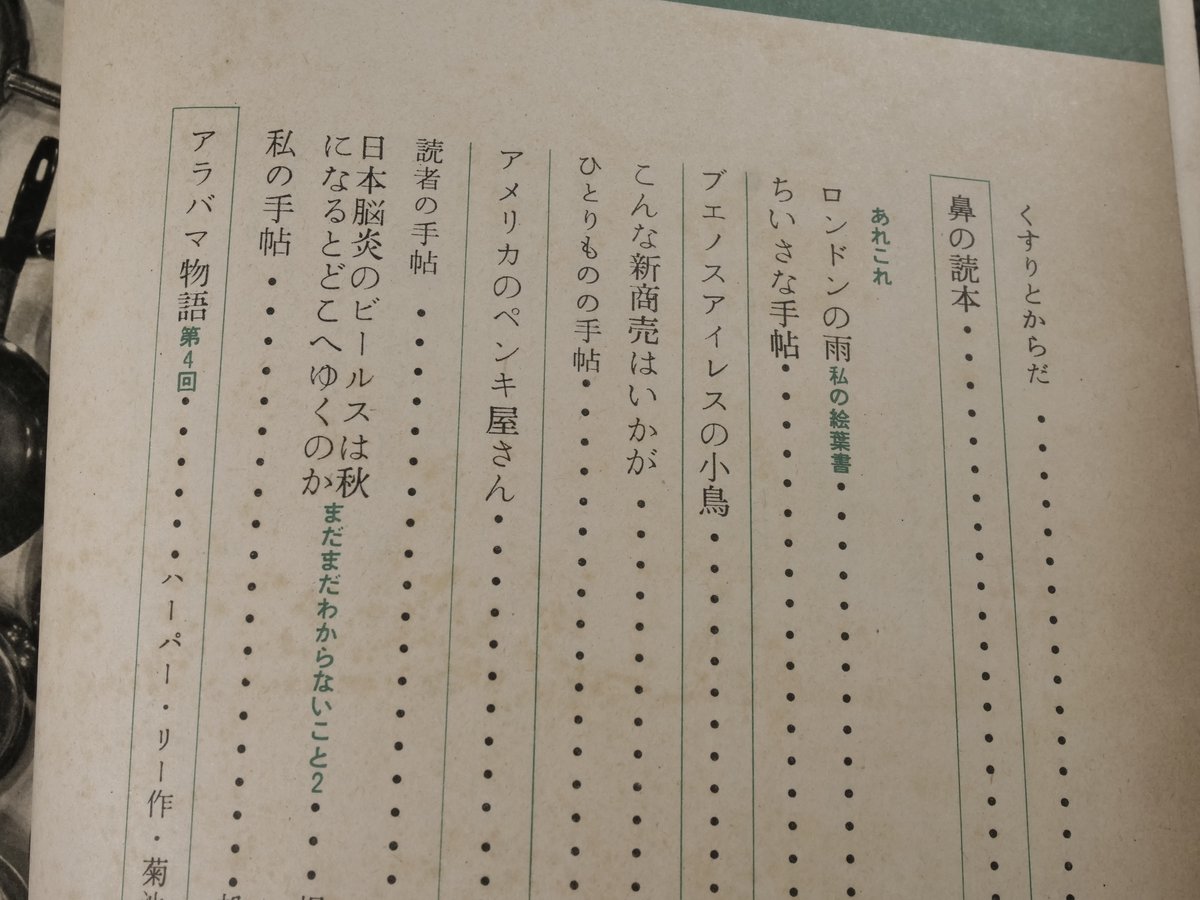 くすりとからだ
鼻の読本
あれこれ
ロンドンの雨 私の絵葉書
ちいさな手帖
ブエノスアイレスの小鳥
こんな新商売はいかが
ひとりものの手帖
アメリカのペンキ屋さん
読者の手帖
日本脳炎のビールスは秋
になるとどこへゆくのか まだまだわからないこと2
私の手帖
アラバマ物語 第4回 ハーパー・リー作・菊池